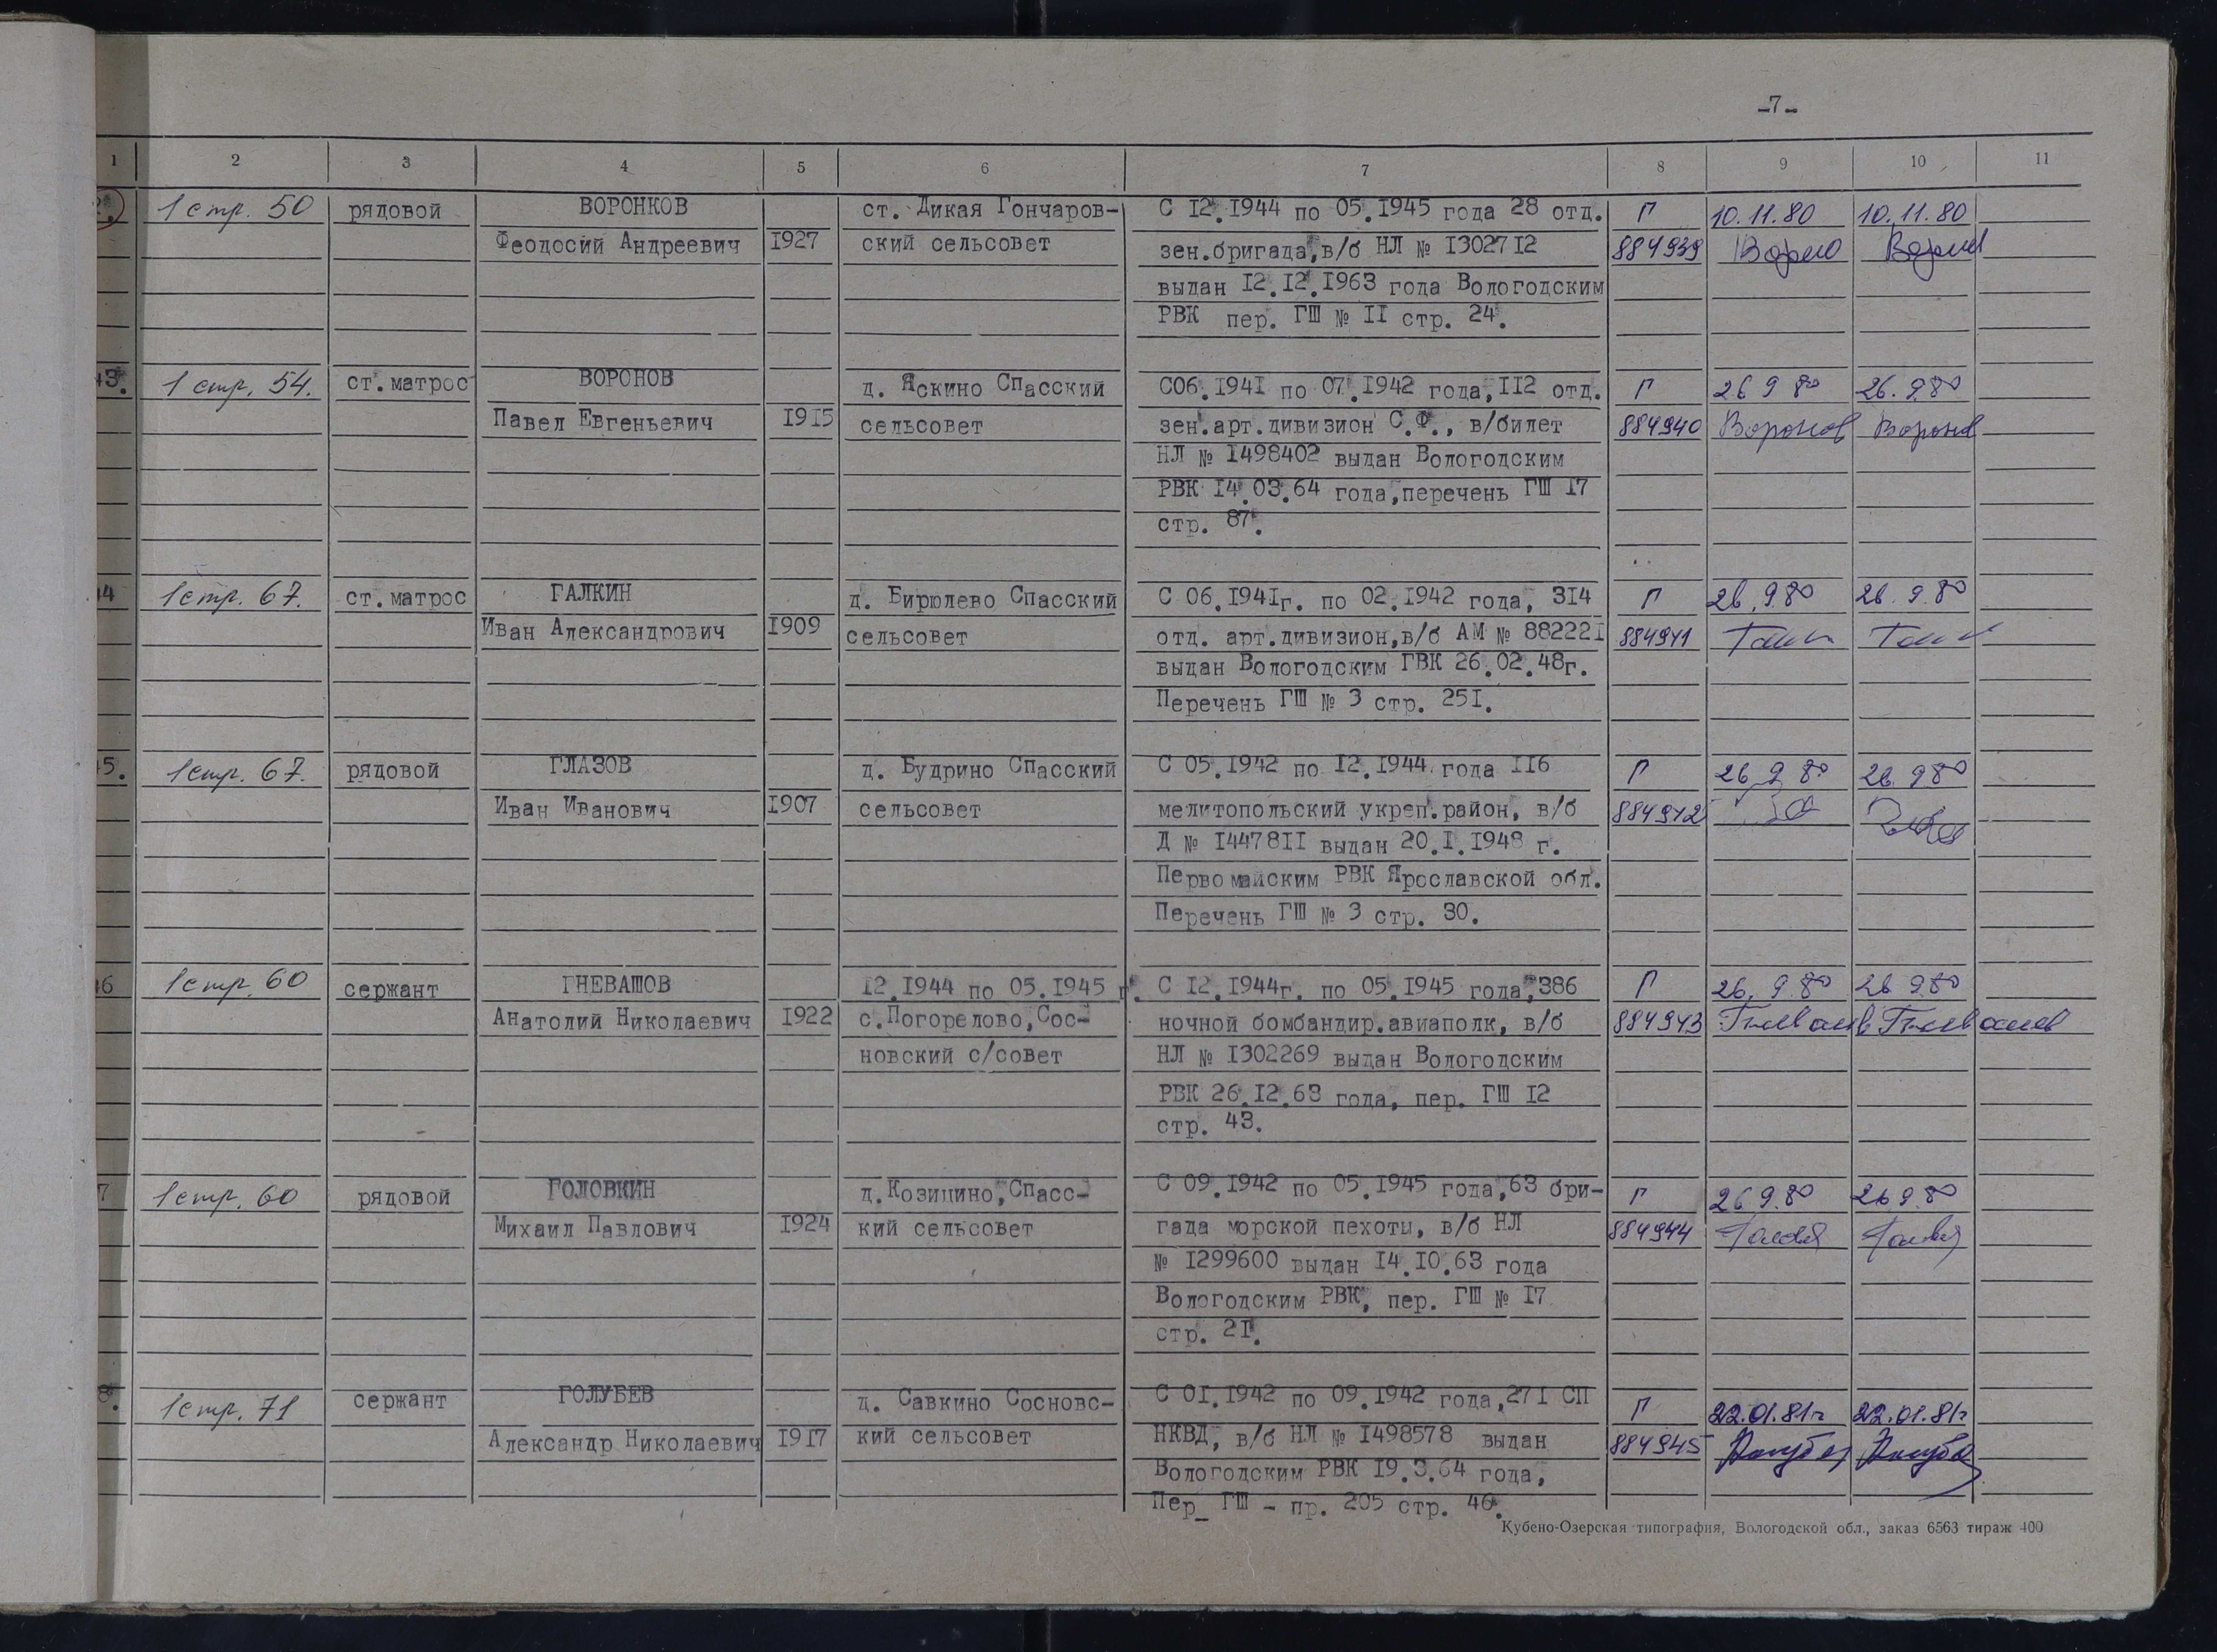 -7-
1 2 3 4 5 6 7 8 9 10 11
2. 1 стр. 50 рядовой ВОРОНКОВ ст. Дикая Гончаров- С 12.1944 по 05.1945 года 28 отд. П 10.11.80 10.11.80
Феодосий Андреевич 1927 ский сельсовет зен.бригада,в/б НЛ № 1302712 884939
выдан 12.12.1963 года Вологодским
РВК пер. ГШ № II стр. 24.
43. 1 стр. 54. ст.матрос ВОРОНОВ д. Яскино Спасский С06.1941 по 07.1942 года,112 отд. П 26 9 80 26.9.80
Павел Евгеньевич 1915 сельсовет зен.арт.дивизион С.Ф., в/билет 884940 Воронов Воронов
НЛ № 1498402 выдан Вологодским
РВК 14.03.64 года,перечень ГШ 17
стр. 87.
44 1 стр. 67. ст.матрос ГАЛКИН д. Бирюлево Спасский С 06.1941г. по 02.1942 года, 314 П 26.9.80 26.9.80
Иван Александрович 1909 сельсовет отд. арт.дивизион,в/б АМ № 882221 884941
выдан Вологодским ГВК 26.02.48г.
Перечень ГШ № 3 стр. 251.
5. 1 стр. 67. рядовой ГЛАЗОВ д. Будрино Спасский С 05.1942 по 12.1944 года 116 П 26 9 80 26.9.80
Иван Иванович 1907 сельсовет мелитопольский укреп.район, в/б 884942
Д № 1447811 выдан 20.I.1948 г.
Первомайским РВК Ярославской обл.
Перечень ГШ № 3 стр. 30.
6 1 стр. 60 сержант ГНЕВАШОВ 12.1944 по 05.1945 г. С 12.1944г. по 05.1945 года,386 П 26.9.80 26 9.80
Анатолий Николаевич 1922 с.Погорелово,Сос- ночной бомбандир.авиаполк, в/б 884943
новский с/совет НЛ № 1302269 выдан Вологодским
РВК 26.12.63 года, пер. ГШ 12
стр. 43.
7 1 стр. 60 рядовой ГОЛОВКИН д.Козицино,Спасс- С 09.1942 по 05.1945 года,63 бри- П 26 9.80 26 9.80
Михаил Павлович 1924 кий сельсовет гада морской пехоты, в/б НЛ 884944
№ 1299600 выдан 14.10.63 года
Вологодским РВК, пер. ГШ № 17
стр. 21.
8. 1 стр. 71 сержант ГОЛУБЕВ д. Савкино Сосновс- С 01.1942 по 09.1942 года,271 СП П 22.01.81г 22.01.81г
Александр Николаевич 1917 кий сельсовет НКВД, в/б НЛ № 1498578 выдан 884945
Вологодским РВК 19.3.64 года,
Пер_ ГШ - пр. 205 стр. 46.
Кубено-Озерская типография, Вологодской обл., заказ 6563 тираж 400